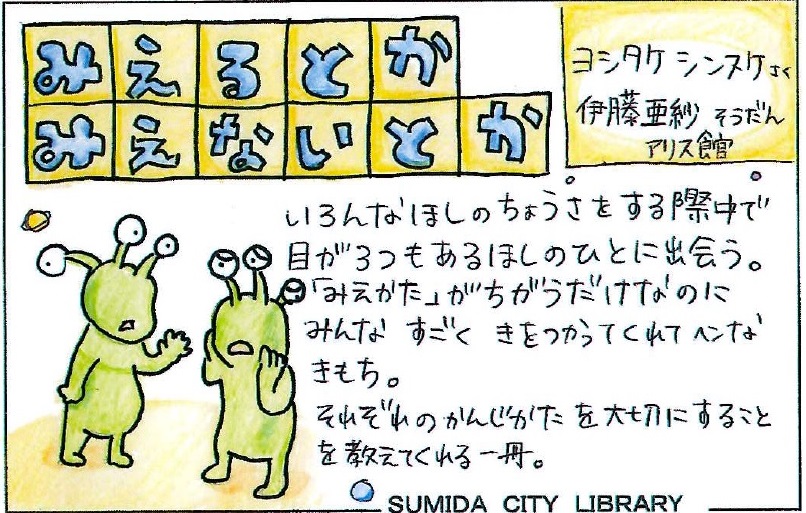 みえるとか
みえないとか
ヨシタケ シンスケ さく
伊藤亜紗 そうだん
アリス館
いろんなほしのちょうさをする際中で
目が3つもあるほしのひとに出会う。
「みえかた」がちがうだけなのに
みんな すごく きをつかってくれてヘンな
きもち。
それぞれのかんじかたを大切にすること
を教えてくれる一冊。
SUMIDA CITY LIBRARY